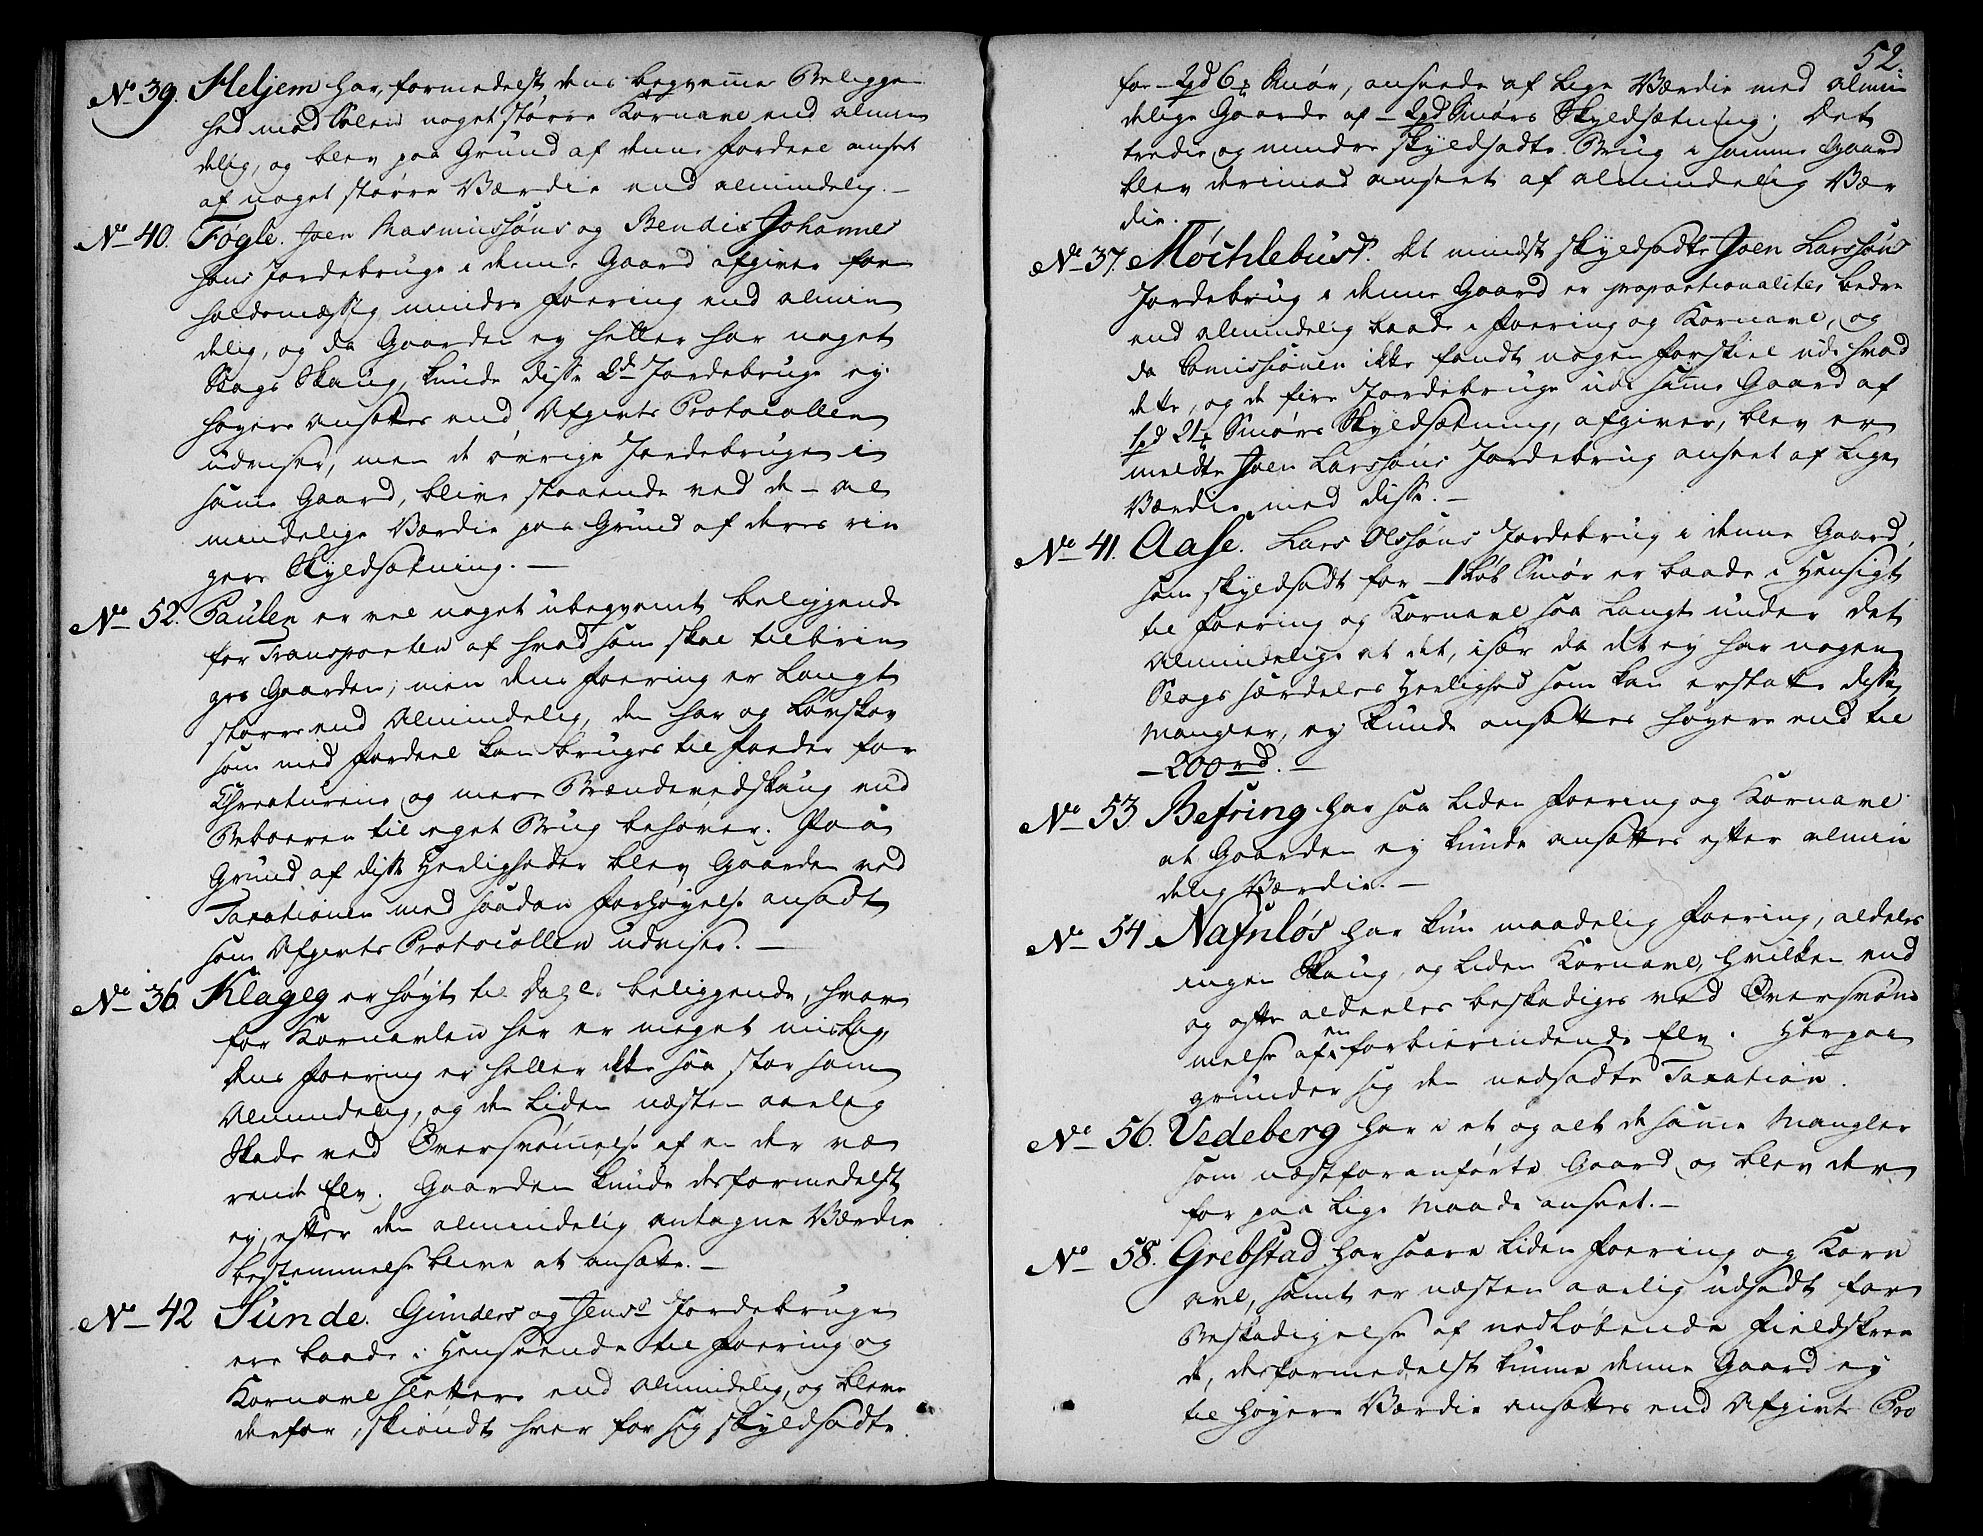 No 39. Heljem har, formedelst dens beqveme Beliggen
hed mod Solen noget større Kornavl end almin
delig, og blev paa Grund af denne Fordeel anseet
af noget større Værdie end almindelig. –
No 40. Føgle. Joen Rasmussøns og Bendix Johannes
søns Jordebruge i denne Gaard afgiver for
holdsmæssig mindre Foering end almin
delig, og da Gaarden ey heller har noget
Slags Skaug, kunde disse 2de Jordebruge ey
høyere ansættes end Afgivts Protocollen
udviser, men de øvrige Jordebruge i
samme Gaard, blive staaende ved de – al
mindelige Værdie paa Grund af deres rin
gere Skyldsætning. –
No 52. Paulen er vel noget ubeqvemt beliggende
for Transporten af hvad som skal tilbrin
ges Gaarden; men dens Foering er langt
større end Almindelig, den har og Løvskov
som med Fordeel kan bruges til Foeder for
Creaturene, og mere Brændevedskaug end
Beboeren til eget Brug behøver. Paa
Grund af disse Herligheder blev Gaarden ved
Taxationen med saadan Forhøyelse ansadt
som Afgivts Protocollen udviser. –
No 36. Klageg er høyt til Dagl. beliggende, hvor
for Kornavlen her er meget mislig,
dens Foering er heller ikke saa stor som
Almindelig, og den lider næsten aarlig
Skade ved Oversvømmelse af en der væ
rende Elv. Gaarden kunde desformedelst
ey, efter den almindelig antagne Værdie
bestemmelse bleve at ansætte. –
No 42 Sunde. Gunders og Jens's Jordebruge
ere baade i Henseende til Foering og
Kornavl slettere end almindelig, og bleve
derfor, skiøndt hver for sig skyldsadte
52.
for – 2pd 6 Smør, anseede af lige Værdie med almin
delige Gaarde af – 2pd Smørs Skyldsætning; Det
tredie og mindre skyldsadte Brug i samme Gaard
blev derimod anseet af almindelig Vær
die.
No 37. Møchlebust. Det mindst skyldsadte Joen Larssøns
Jordebrug i denne Gaard er proportionaliter bedre
end almindelig baade i Foering og Kornavl, og
da Comissionen ikke fandt nogen Forskiel udi hvad
dette, og de fire Jordebruge udi samme Gaard af
1pd 21 Smørs Skyldsætning, afgiver, blev er
meldte Joen Larssøns Jordebrug anseet af lige
Værdie med disse. –
No 41. Aase. Lars Olssøns Jordebrug i denne Gaard,
som skyldsadt for – 1 Løb Smør er baade i Hensigt
til Foering og Kornavl saa langt under det
Almindelige at det, især da det ey har nogen
Slags særdeles Herlighed som kan erstatte disse
Mangler, ey kunde ansættes høyere end til
– 200 rd. –
No 53. Befring har saa liden Foering og Kornavl
at Gaarden ey kunde ansættes efter almin
delig Værdie. –
No 54 Nafnløs har kun maadelig Foering, aldeles
ingen Skaug, og liden Kornavl, hvilken end
og ofte aldeeles beskadiges ved Oversvøm
melse af en forbierindende Elv. Herpaa
grunder sig den nedsadte Taxation.
No 56. Vedeberg har i et og alt de samme Mangler
som næstforanførte Gaard, og blev der
for paa lige Maade anseet. –
No 58. Grebstad har saare liden Foering og Korn
avl, samt er næsten aarlig udsadt for
Beskadigelse af nedløbende Fieldskree
de, desformedelst kunne denne Gaard ey
til høyere Værdie ansættes end Afgivts Pro